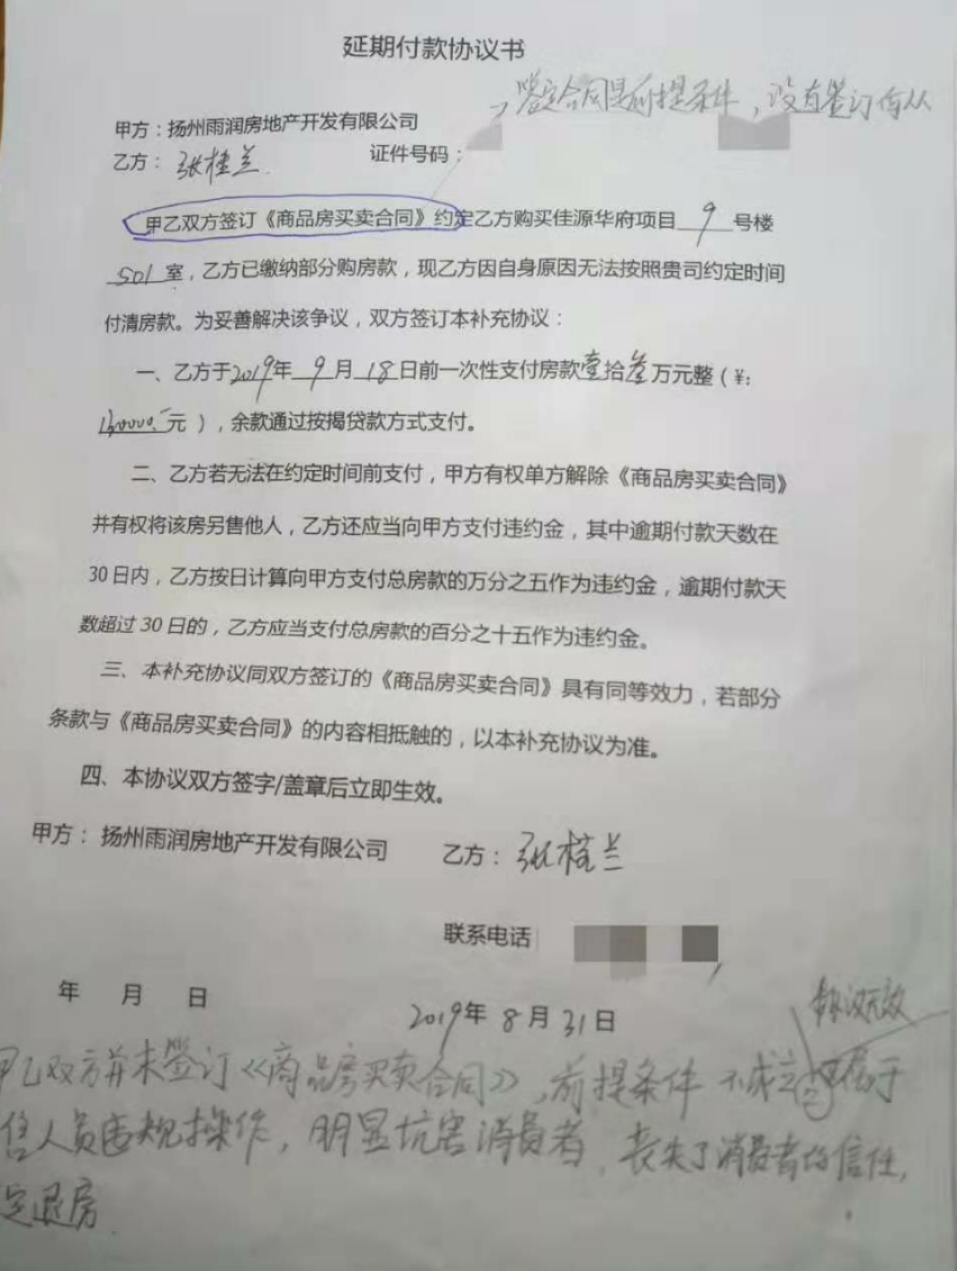 延期付款协议书
签定合同是前提条件，没有签订何从
甲方：扬州雨润房地产开发有限公司
乙方：张桂兰 证件号码：
甲乙双方签订《商品房买卖合同》约定乙方购买佳源华府项目 9 号楼
501室，乙方已缴纳部分购房款，现乙方因自身原因无法按照贵司约定时间
付清房款。为妥善解决该争议，双方签订本补充协议：
一、乙方于2019年 9 月 18 日前一次性支付房款壹拾叁万元整（¥:
130000.元），余款通过按揭贷款方式支付。
二、乙方若无法在约定时间前支付，甲方有权单方解除《商品房买卖合同》
并有权将该房另售他人，乙方还应当向甲方支付违约金，其中逾期付款天数在
30日内，乙方按日计算向甲方支付总房款的万分之五作为违约金，逾期付款天
数超过30日的，乙方应当支付总房款的百分之十五作为违约金。
三、本补充协议同双方签订的《商品房买卖合同》具有同等效力，若部分
条款与《商品房买卖合同》的内容相抵触的，以本补充协议为准。
四、本协议双方签字/盖章后立即生效。
甲方：扬州雨润房地产开发有限公司 乙方：张桂兰
联系电话
年 月 日 2019年 8 月 31 日
协议无效
甲乙双方并未签订《商品房买卖合同》，前提条件不成立 属于
售人员违规操作，明显坑害消费者，丧失了消费者的信任，
定退房